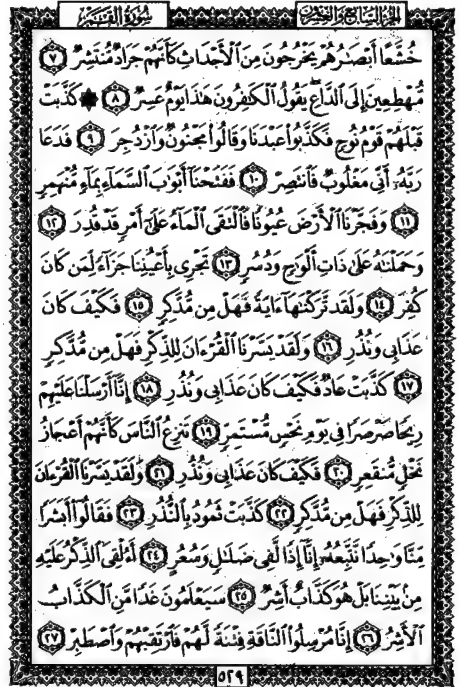 سُورَةُ القَمَرِ
الجزء السابع والعشرون
خُشَّعًا أَبْصَٰرُهُمْ يَخْرُجُونَ مِنَ ٱلْأَجْدَاثِ كَأَنَّهُمْ جَرَادٌ مُّنتَشِرٌ ٧
مُّهْطِعِينَ إِلَى ٱلدَّاعِ يَقُولُ ٱلْكَٰفِرُونَ هَٰذَا يَوْمٌ عَسِرٌ ٨ ۞ كَذَّبَتْ
قَبْلَهُمْ قَوْمُ نُوحٍ فَكَذَّبُوا۟ عَبْدَنَا وَقَالُوا۟ مَجْنُونٌ وَٱزْدُجِرَ ٩ فَدَعَا
رَبَّهُۥٓ أَنِّى مَغْلُوبٌ فَٱنتَصِرْ ١٠ فَفَتَحْنَآ أَبْوَٰبَ ٱلسَّمَآءِ بِمَآءٍ مُّنْهَمِرٍ
١١ وَفَجَّرْنَا ٱلْأَرْضَ عُيُونًا فَٱلْتَقَى ٱلْمَآءُ عَلَىٰٓ أَمْرٍ قَدْ قُدِرَ ١٢
وَحَمَلْنَٰهُ عَلَىٰ ذَاتِ أَلْوَٰحٍ وَدُسُرٍ ١٣ تَجْرِى بِأَعْيُنِنَا جَزَآءً لِّمَن كَانَ
كُفِرَ ١٤ وَلَقَد تَّرَكْنَٰهَآ ءَايَةً فَهَلْ مِن مُّدَّكِرٍ ١٥ فَكَيْفَ كَانَ
عَذَابِى وَنُذُرِ ١٦ وَلَقَدْ يَسَّرْنَا ٱلْقُرْءَانَ لِلذِّكْرِ فَهَلْ مِن مُّدَّكِرٍ
١٧ كَذَّبَتْ عَادٌ فَكَيْفَ كَانَ عَذَابِى وَنُذُرِ ١٨ إِنَّآ أَرْسَلْنَا عَلَيْهِمْ
رِيحًا صَرْصَرًا فِى يَوْمِ نَحْسٍ مُّسْتَمِرٍّ ١٩ تَنزِعُ ٱلنَّاسَ كَأَنَّهُمْ أَعْجَازُ
نَخْلٍ مُّنقَعِرٍ ٢٠ فَكَيْفَ كَانَ عَذَابِى وَنُذُرِ ٢١ وَلَقَدْ يَسَّرْنَا ٱلْقُرْءَانَ
لِلذِّكْرِ فَهَلْ مِن مُّدَّكِرٍ ٢٢ كَذَّبَتْ ثَمُودُ بِٱلنُّذُرِ ٢٣ فَقَالُوٓا۟ أَبَشَرًا
مِّنَّا وَٰحِدًا نَّتَّبِعُهُۥٓ إِنَّآ إِذًا لَّفِى ضَلَٰلٍ وَسُعُرٍ ٢٤ أَءُلْقِىَ ٱلذِّكْرُ عَلَيْهِ
مِنۢ بَيْنِنَا بَلْ هُوَ كَذَّابٌ أَشِرٌ ٢٥ سَيَعْلَمُونَ غَدًا مَّنِ ٱلْكَذَّابُ
ٱلْأَشِرُ ٢٦ إِنَّا مُرْسِلُوا۟ ٱلنَّاقَةِ فِتْنَةً لَّهُمْ فَٱرْتَقِبْهُمْ وَٱصْطَبِرْ ٢٧
٥٢٩